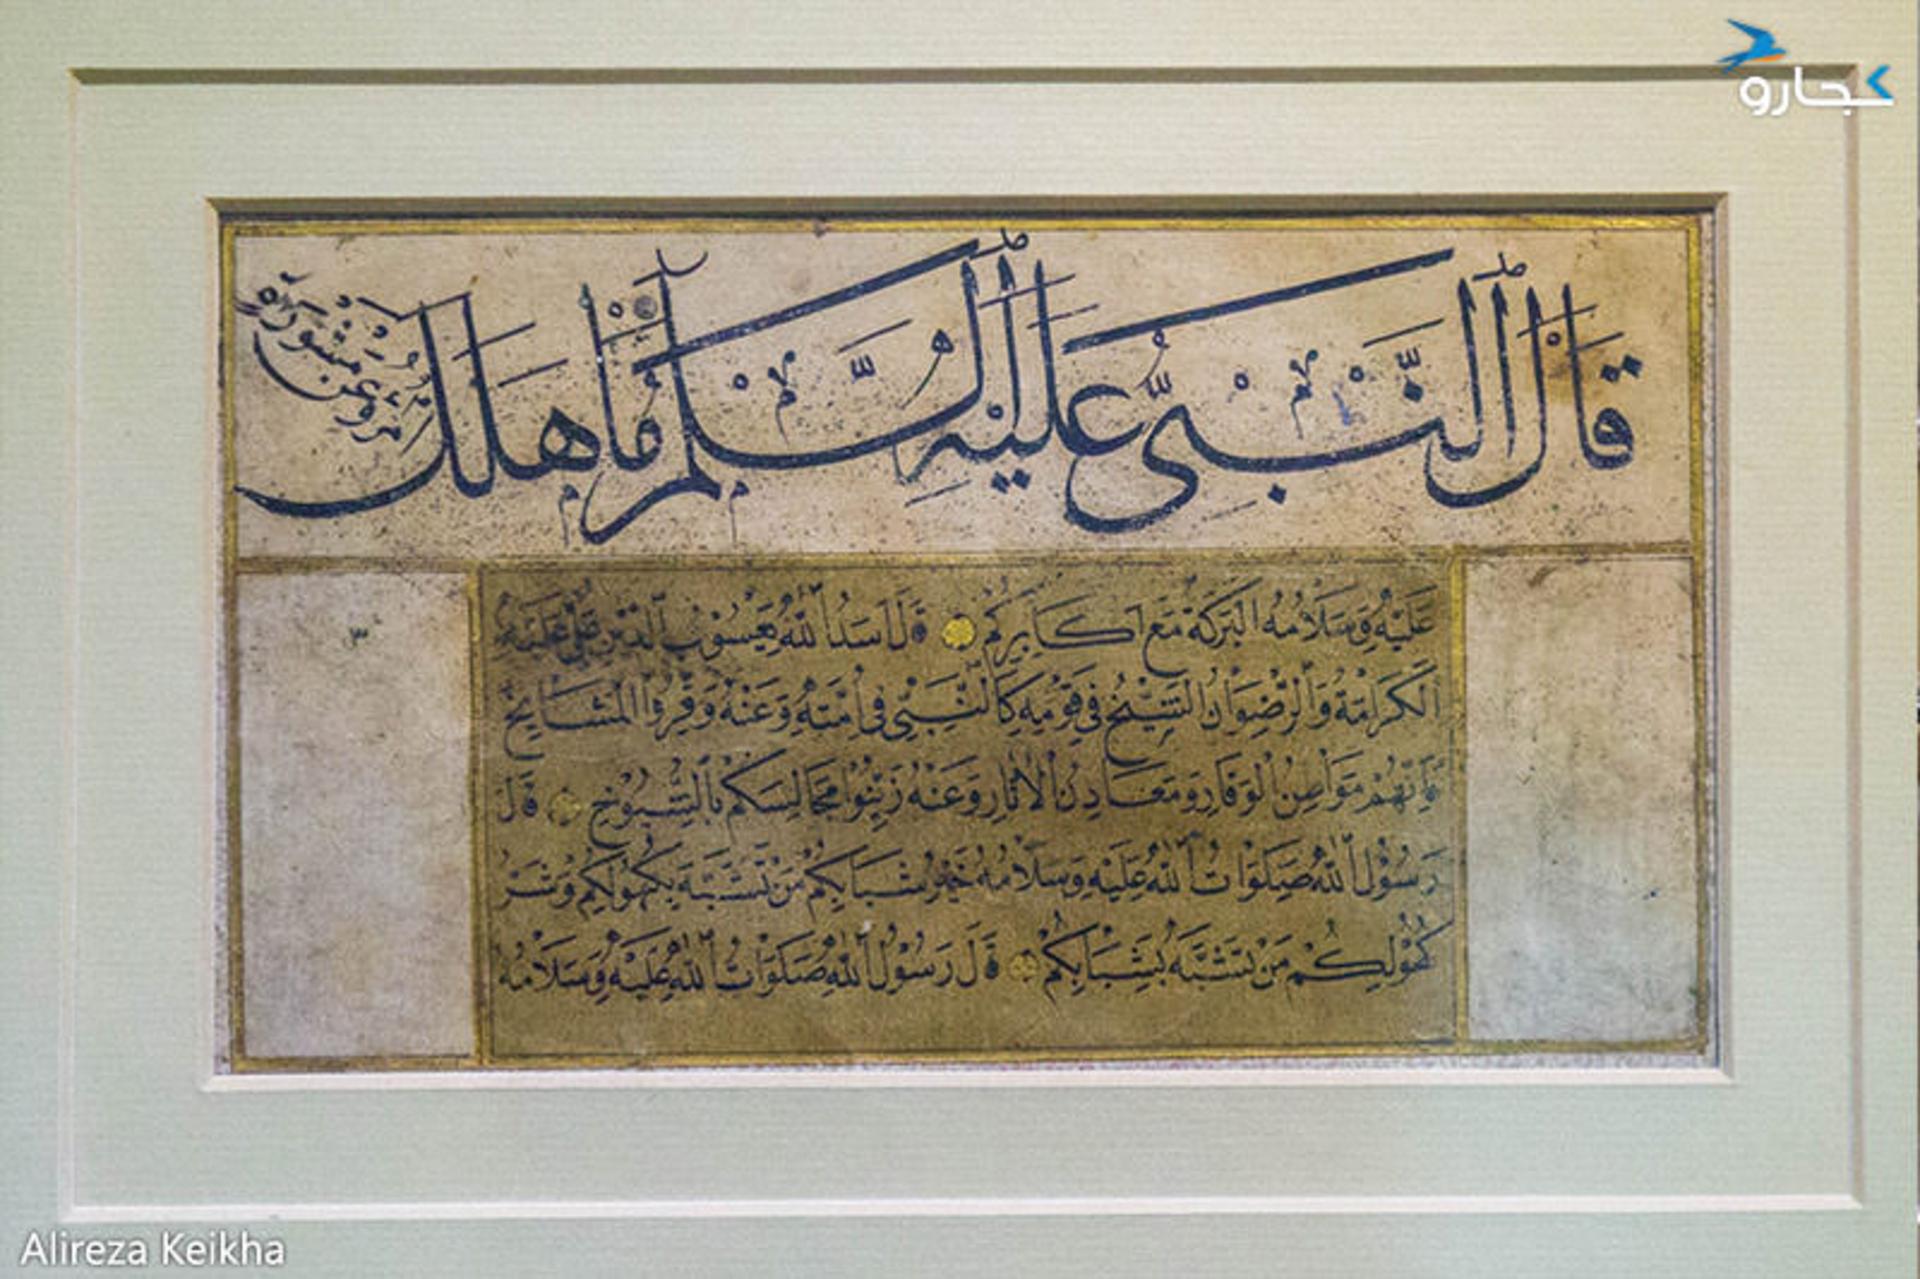 کجارو
قَالَ ٱلنَّبِيُّ عَلَيْهِ ٱلسَّلَمُ مَا هَلَكَ امْرُؤٌ عَنْ مَشُورَةٍ
عَلَيْهِ وَسَلَامُهُ الْبَرَكَةُ مَعَ اَكَابِرِكُمْ قَالَ اَسَدُ اللّٰهِ يَعْسُوْبُ الدِّيْنِ عَلِيٌّ عَلَيْهِ
الْكَرَامَةُ وَالرِّضْوَانُ الشَّيْخُ فِي قَوْمِهِ كَالنَّبِيِّ فِي اُمَّتِهِ وَعَنْهُ وَقِّرُوا الْمَشَايِخَ
فَاِنَّهُمْ مَوَاطِنُ الْوَقَارِ وَمَعَادِنُ الْاٰثَارِ وَعَنْهُ زَيِّنُوْا مَجَالِسَكُمْ بِالشُّيُوْخِ قَالَ
رَسُوْلُ اللّٰهِ صَلَوَاتُ اللّٰهِ عَلَيْهِ وَسَلَامُهُ خَيْرُ شَبَابِكُمْ مَنْ تَشَبَّهَ بِكُهُوْلِكُمْ وَشَرُّ
كُهُوْلِكُمْ مَنْ تَشَبَّهَ بِشَبَابِكُمْ قَالَ رَسُوْلُ اللّٰهِ صَلَوَاتُ اللّٰهِ عَلَيْهِ وَسَلَامُهُ
Alireza Keikha